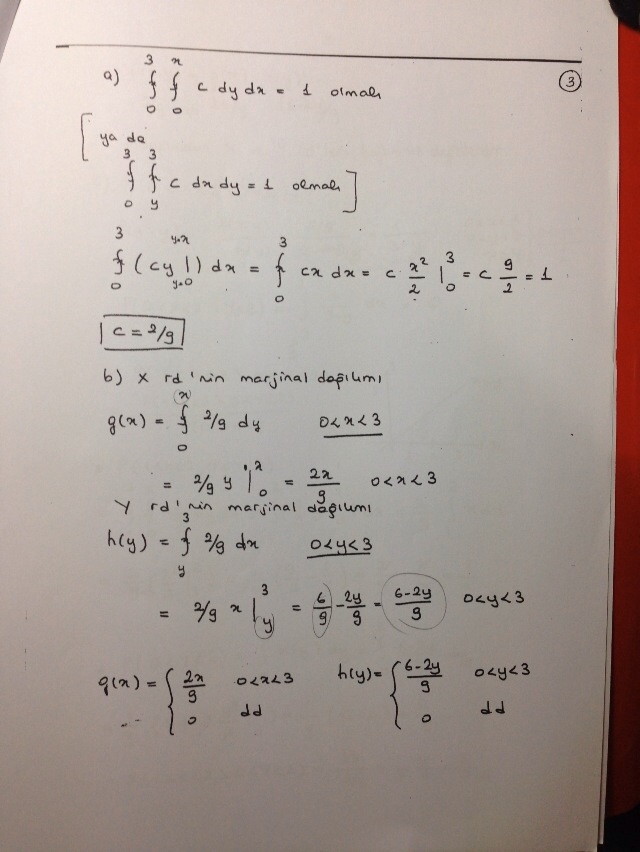 ③
a) ∫₀³ ∫₀ˣ c dy dx = 1 olmalı
[ ya da
∫₀³ ∫ᵧ³ c dx dy = 1 olmalı ]
∫₀³ (cy |_{y=0}^{y=x}) dx = ∫₀³ cx dx = c x²/2 |₀³ = c 9/2 = 1
c = 2/9
b) X rd'nin marjinal dağılımı
g(x) = ∫₀ˣ 2/9 dy 0<x<3
= 2/9 y |₀ˣ = 2x/9 0<x<3
Y rd'nin marjinal dağılımı
h(y) = ∫ᵧ³ 2/9 dx 0<y<3
= 2/9 x |ᵧ³ = 6/9 - 2y/9 = 6-2y/9 0<y<3
g(x) = { 2x/9 0<x<3 h(y) = { 6-2y/9 0<y<3
0 dd 0 dd